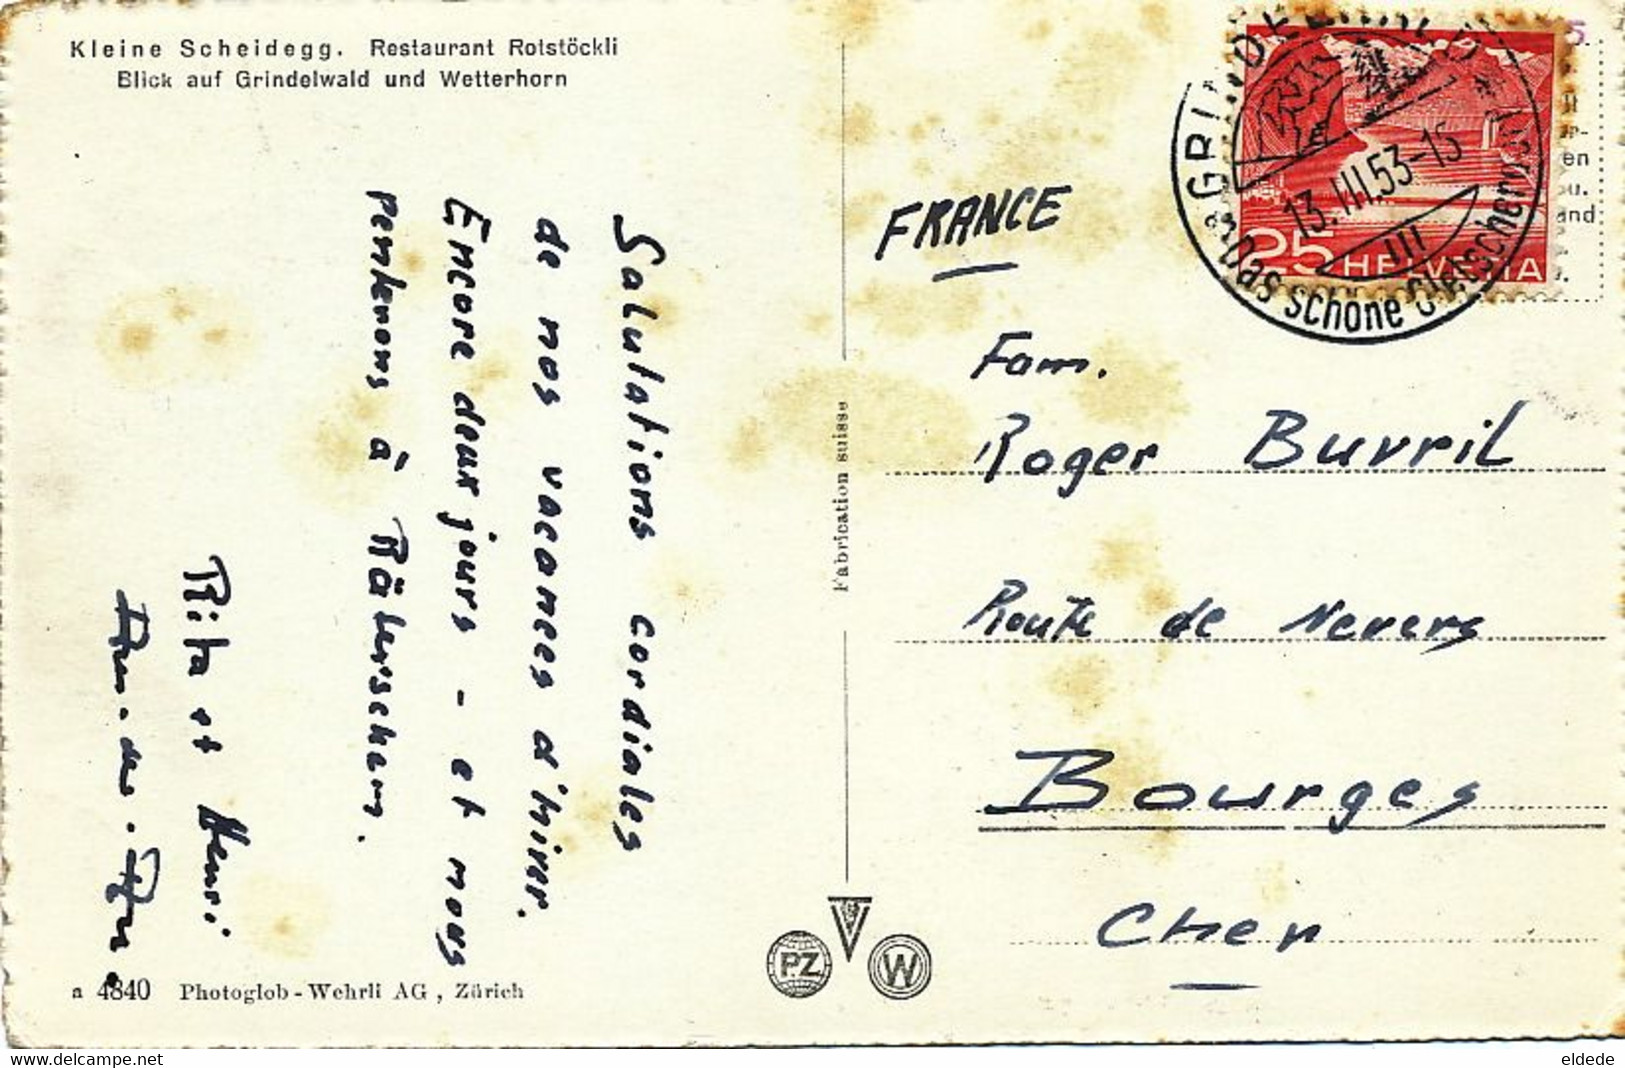 Kleine Scheidegg. Restaurant Rotstöckli
Blick auf Grindelwald und Wetterhorn
Salutations cordiales
de nos vacances d'hiver.
Encore deux jours - et nous
penterons à Räterschen.
Rita et Henri
a 4840 Photoglob-Wehrli AG, Zürich
Fabrication suisse
PZ
W
GRINDELWALD
13.III.53-15
III
Das schöne Gletscherdorf
25 HELVETIA
5.
en
u.
and
FRANCE
Fam.
Roger Buvril
Route de Nevers
Bourges
Cher
eldede